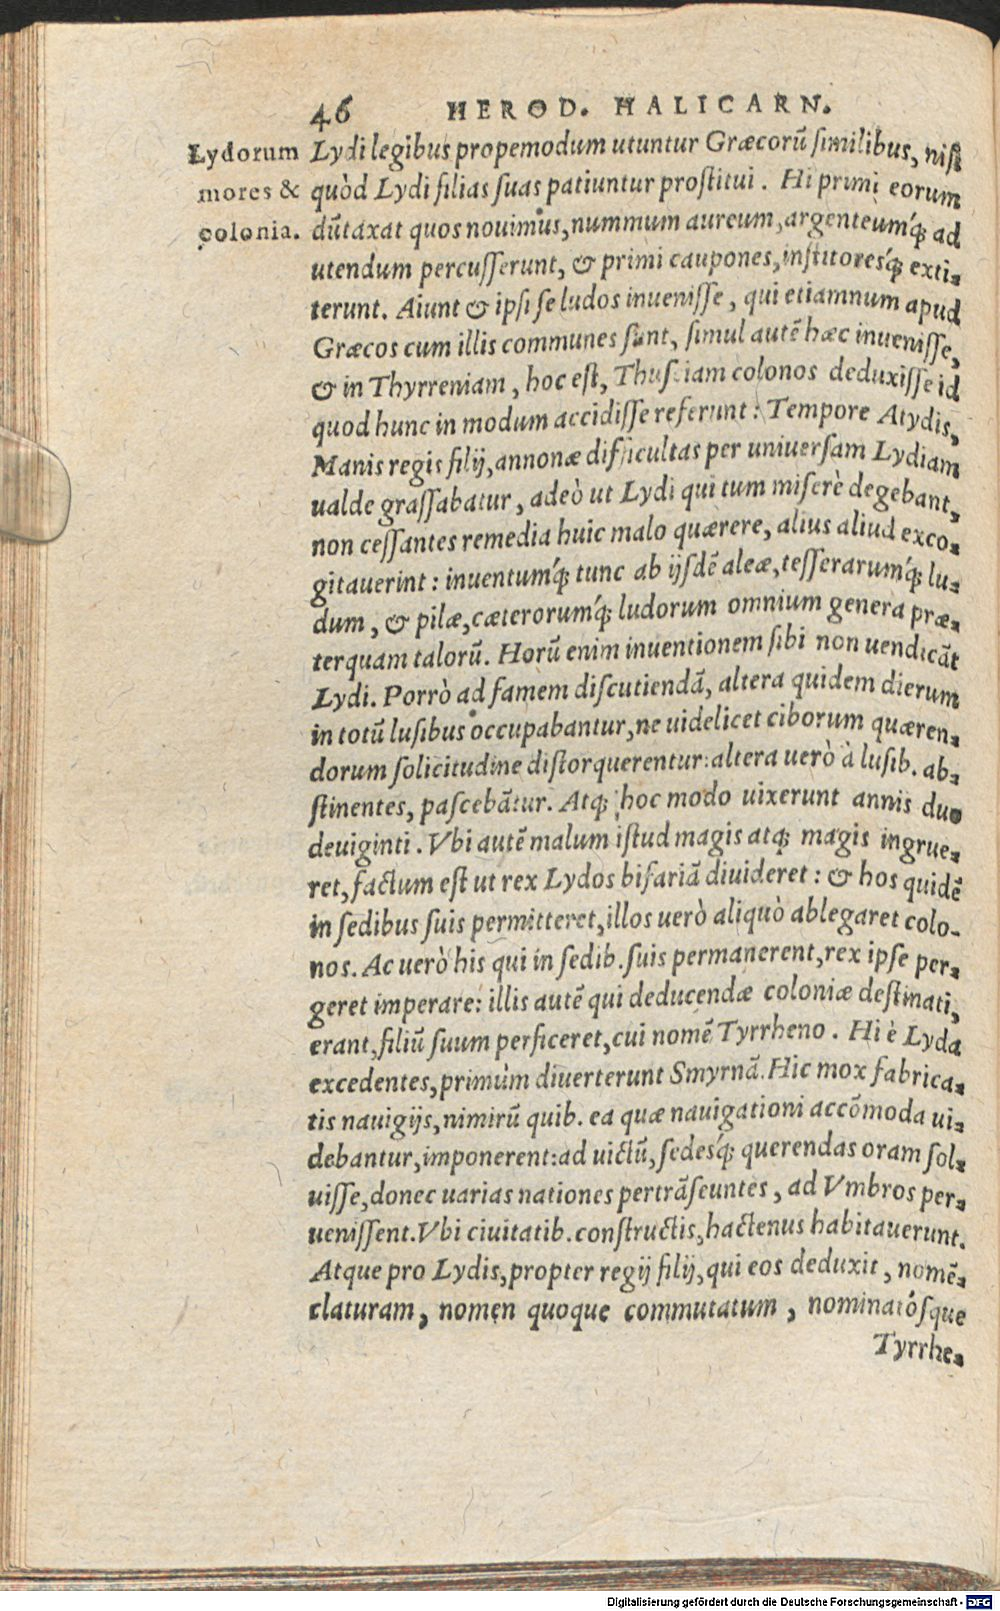 46 HEROD. HALICARN.
Lydorum
mores &
colonia.
Lydi legibus propemodum utuntur Græcorū similibus, nisi
quòd Lydi filias suas patiuntur prostitui. Hi primi eorum
dūtaxat quos nouimus, nummum aureum, argenteumq́; ad
utendum percusserunt, & primi caupones, institoresq́; exti-
terunt. Aiunt & ipsi se ludos inuenisse, qui etiamnum apud
Græcos cum illis communes sunt, simul autē hæc inuenisse,
& in Thyrreniam, hoc est, Thusciam colonos deduxisse id
quod hunc in modum accidisse referunt: Tempore Atydis,
Manis regis filij, annonæ difficultas per uniuersam Lydiam
ualde grassabatur, adeò ut Lydi qui tum miserè degebant,
non cessantes remedia huic malo quærere, alius aliud exco-
gitauerint: inuentumq́; tunc ab ijsdē aleæ, tesserarumq́; lu-
dum, & pilæ, cæterorumq́; ludorum omnium genera præ-
terquam talorū. Horū enim inuentionem sibi non uendicāt
Lydi. Porrò ad famem discutiendā, altera quidem dierum
in totū lusibus occupabantur, ne uidelicet ciborum quæren-
dorum solicitudine distorquerentur: altera uerò à lusib. ab-
stinentes, pascebātur. Atq; hoc modo uixerunt annis duo
deuiginti. Vbi autē malum istud magis atq; magis ingrue-
ret, factum est ut rex Lydos bifariā diuideret: & hos quidē
in sedibus suis permitteret, illos uerò aliquò ablegaret colo-
nos. Ac uerò his qui in sedib. suis permanerent, rex ipse per-
geret imperare: illis autē qui deducendæ coloniæ destinati,
erant, filiū suum perficeret, cui nomē Tyrrheno. Hi è Lyda
excedentes, primùm diuerterunt Smyrnā. Hic mox fabrica-
tis nauigijs, nimirū quib. ea quæ nauigationi accōmoda ui-
debantur, imponerent: ad uictū, sedesq́; querendas oram sol-
uisse, donec uarias nationes pertrāseuntes, ad Vmbros per-
uenissent. Vbi ciuitatib. constructis, hactenus habitauerunt.
Atque pro Lydis, propter regij filij, qui eos deduxit, nomē-
claturam, nomen quoque commutatum, nominatósque
Tyrrhe-
Digitalisierung gefördert durch die Deutsche Forschungsgemeinschaft - DFG